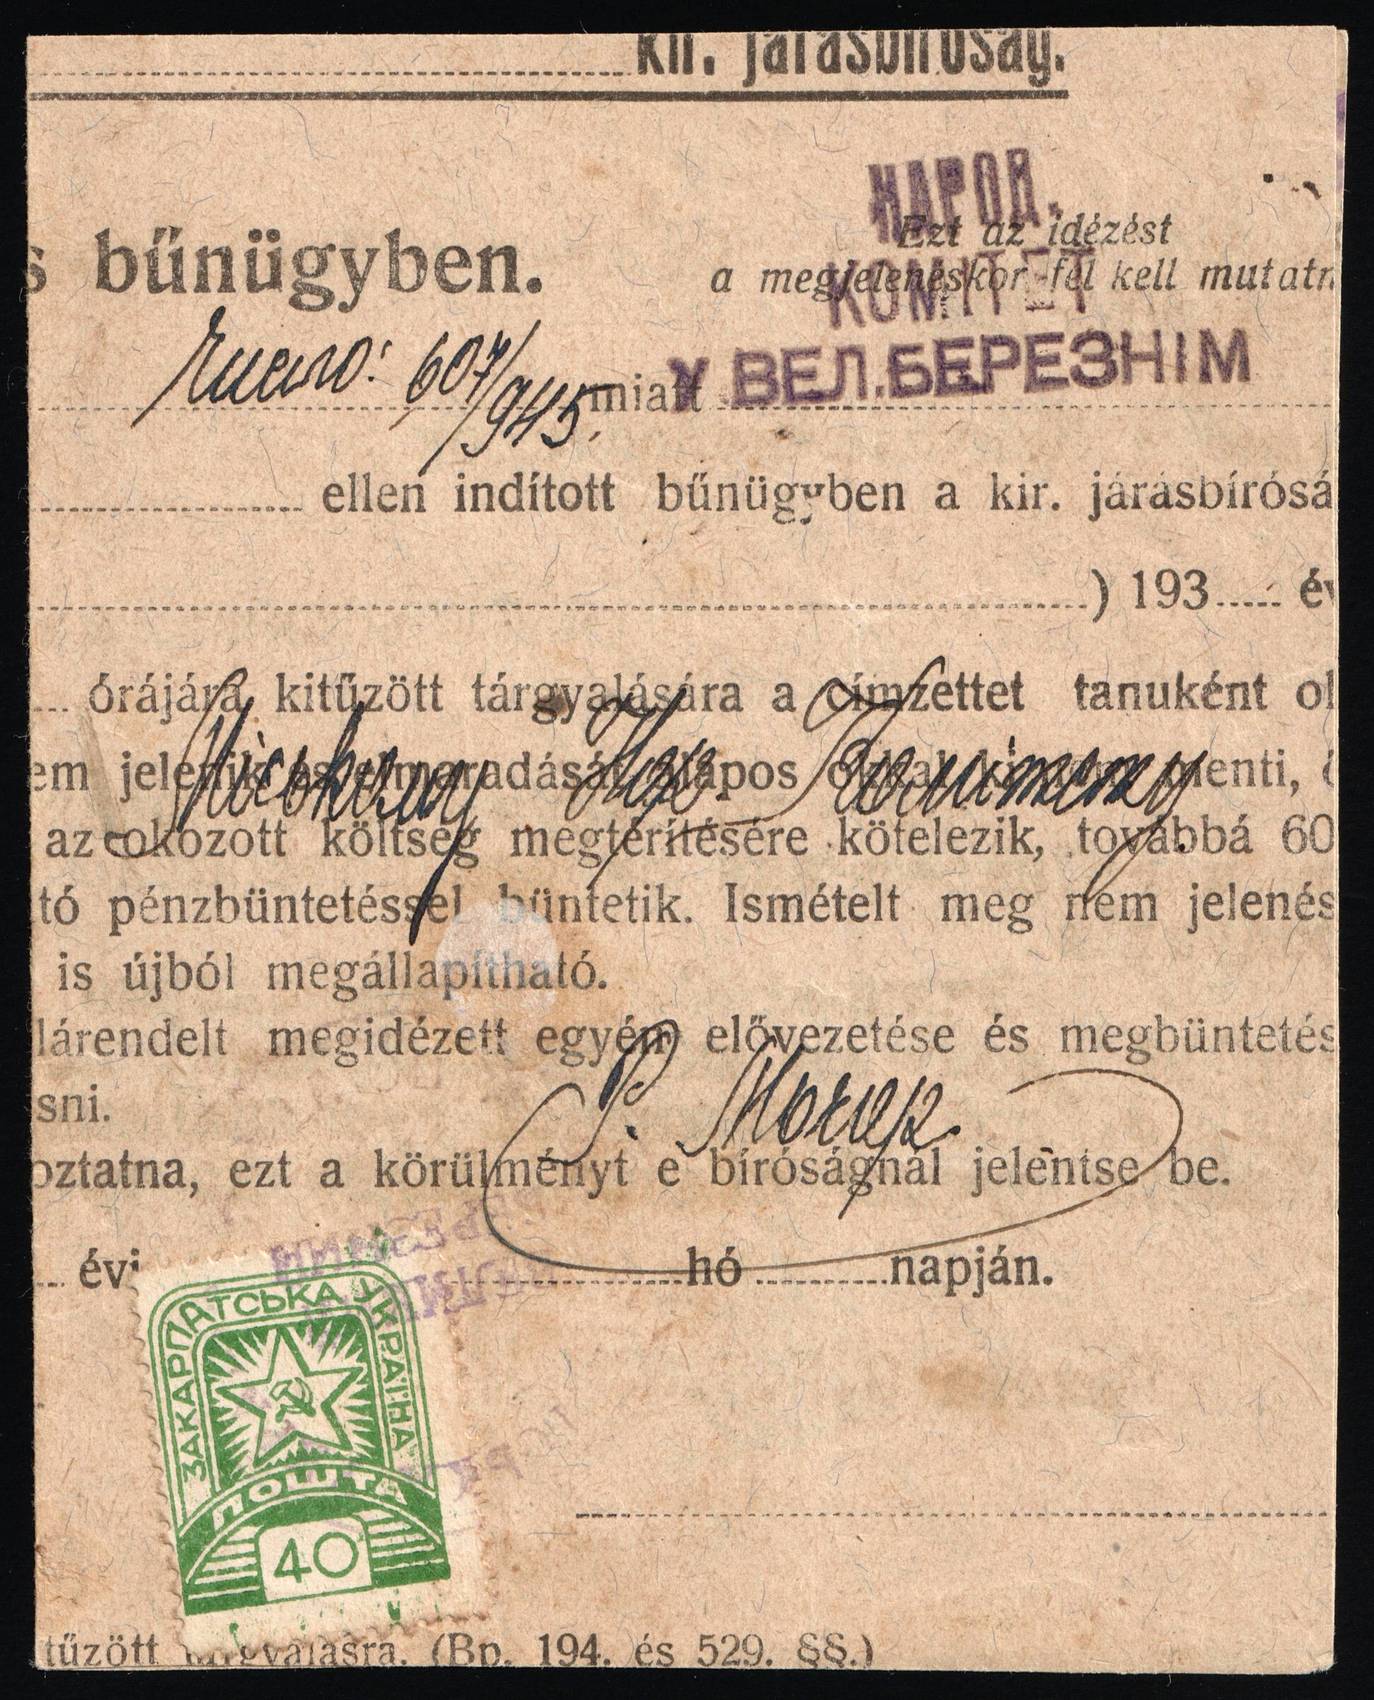 kir. járásbíróság.
НАРОД.
Ezt az idézést
s bűnügyben.
a megjelenéskor fel kell mutatn
КОМІТЕТ
У ВЕЛ.БЕРЕЗНІМ
Число: 607/945.
miatt
ellen indított bűnügyben a kir. járásbírósá
) 193 év
órájára kitűzött tárgyalására a címzettet tanuként ol
em jelenik és elmaradását alapos menti,
az okozott költség megtérítésére kötelezik, továbbá 60
tó pénzbüntetéssel büntetik. Ismételt meg nem jelenés
is újból megállapítható.
lárendelt megidézett egyén elővezetése és megbüntetés
sni.
Р. Мочар.
oztatna, ezt a körülményt e bíróságnál jelentse be.
évi hó napján.
ЗАКАРПАТСЬКА УКРАЇНА
ПОШТА
40
tűzött tárgyalásra. (Bp. 194. és 529. §§.)